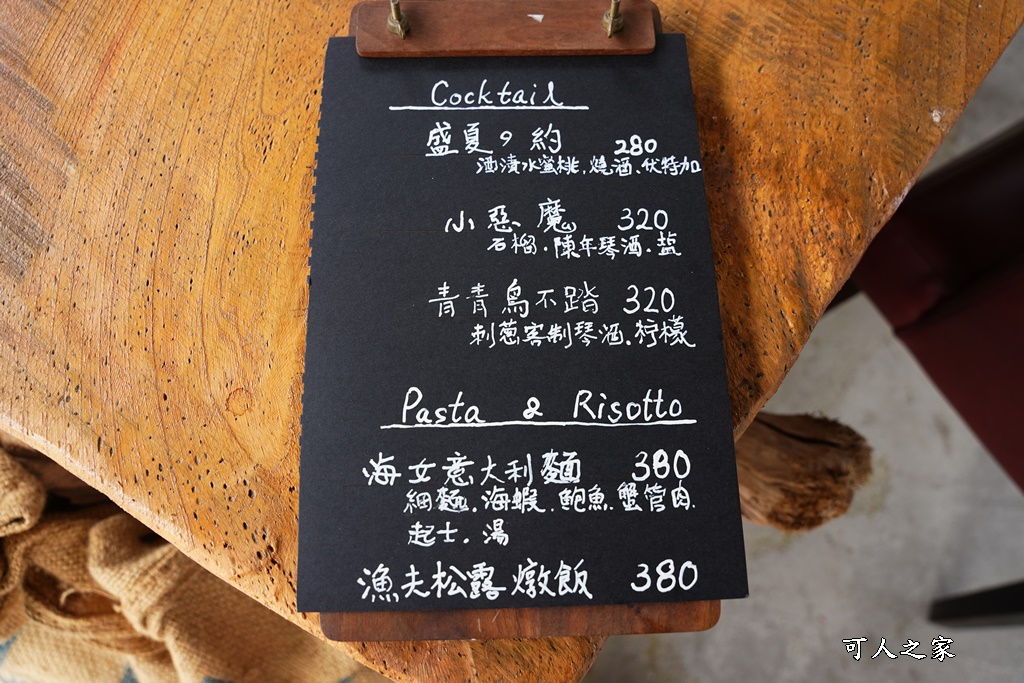 Cocktail
盛夏9約 280
酒漬水蜜桃.燒酒.伏特加
小惡魔 320
石榴.陳年琴酒.盐
青青鳥不踏 320
刺蔥客制琴酒.柠檬
Pasta & Risotto
海女意大利麵 380
細麵.海蝦.鲍魚.蟹管肉.
起士.湯
漁夫松露燉飯 380
可人之家